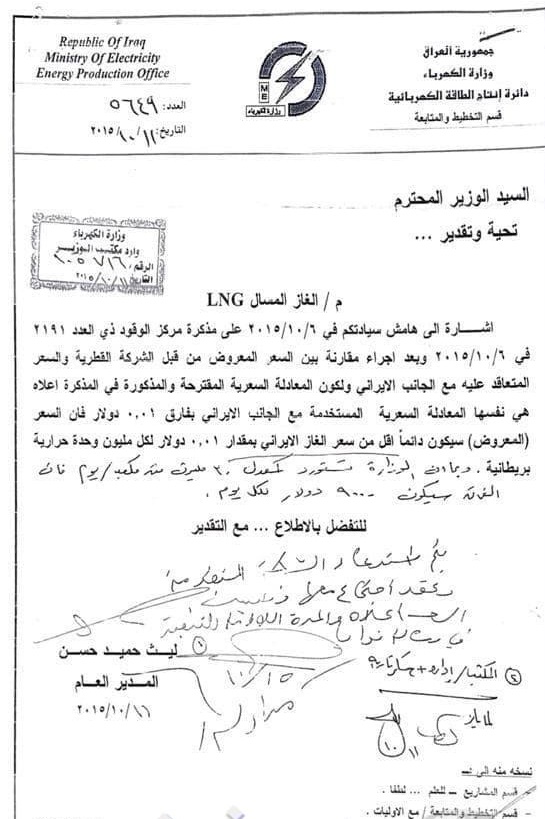 Republic Of Iraq
Ministry Of Electricity
Energy Production Office
العدد: ٥٦٤٩
التاريخ: ٢٠١٥/١٠/١١
ME
وزارة الكهرباء
جمهورية العراق
وزارة الكهرباء
دائرة إنتاج الطاقة الكهربائية
قسم التخطيط والمتابعة
السيد الوزير المحترم
تحية وتقدير ...
وزارة الكهرباء
وارد مكتب الوزير
الرقم:
التاريخ
م / الغاز المسال LNG
اشـــارة الى هامش سيادتكم في ٢٠١٥/١٠/٦ على مذكرة مركز الوقود ذي العدد ٢١٩١
في ٢٠١٥/١٠/٦ وبعد اجراء مقارنة بين السعر المعروض من قبل الشركة القطرية والسعر
المتعاقد عليه مع الجانب الايراني ولكون المعادلة السعرية المقترحة والمذكورة في المذكرة اعلاه
هي نفسها المعادلة السعرية المستخدمة مع الجانب الايراني بفارق ٠,٠١ دولار فان السعر
(المعروض) سيكون دائماً اقل من سعر الغاز الايراني بمقدار ٠,٠١ دولار لكل مليون وحدة حرارية
بريطانية . وبما ان الوزارة تستورد بمعدل ٣٠ مليون متر مكعب/يوم فان
سيكون ٩٠٠٠ دولار لكل يوم .
للتفضل بالاطلاع ... مع التقدير
يتم استدعاء الشركة
اجتماع معها
ليث حميد حسن
المـدير العـام
٢٠١٥/١٠/١١
نسخه منه الى :ـ
- قسم المشاريع ــ للعلم ... لطفا .
- قسم التخطيط والمتابعة / مع الاوليات .